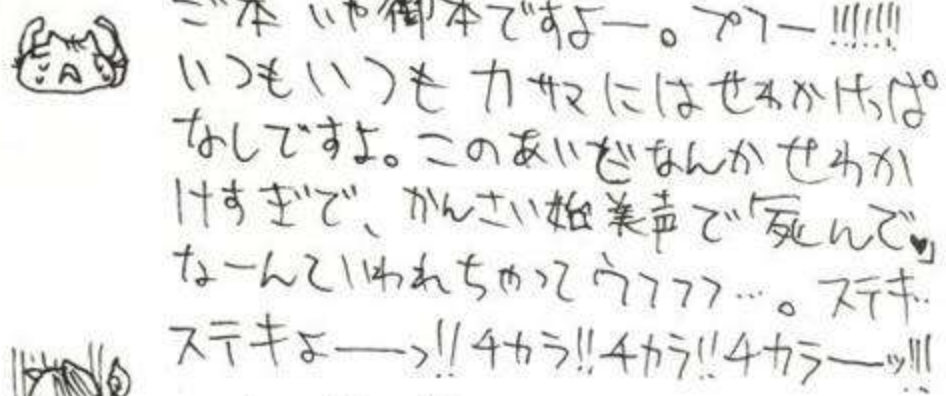 ご本 いや御本ですよー。プフー!!!!!!
いつもいつも カサマにはせわかけっぱ
なしですよ。このあいだなんかせわか
けすぎで、かんさい始美声で「死んで♥」
なーんていわれちゃってウフフフ…。ステキ
ステキよ――っ!!チカラ!!チカラ!!チカラ――ッ!!!